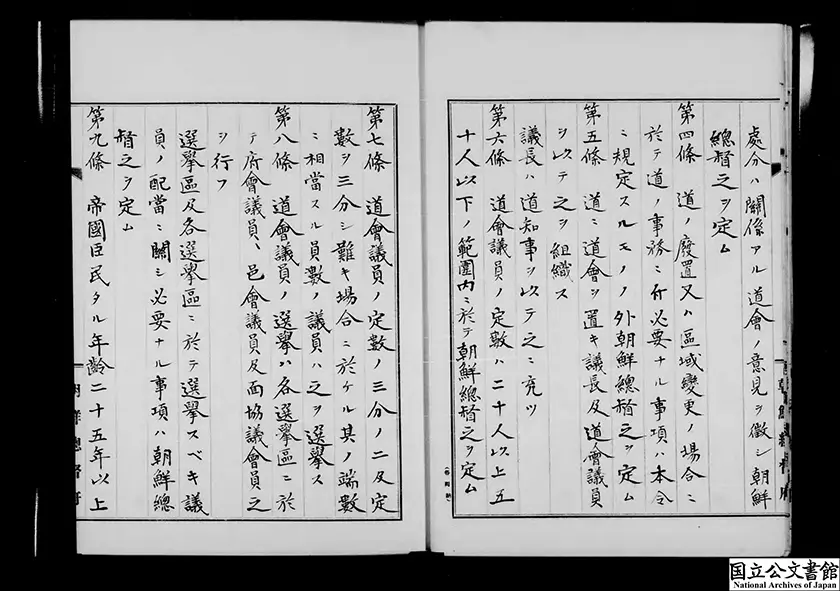 處分ハ關係アル道會ノ意見ヲ徴シ朝鮮
總督之ヲ定ム
第四條 道ノ廢置又ハ區域變更ノ場合ニ
於テ道ノ事務ニ付必要ナル事項ハ本令
ニ規定スルモノノ外朝鮮總督之ヲ定ム
第五條 道ニ道會ヲ置キ議長及道會議員
ヲ以テ之ヲ組織ス
議長ハ道知事ヲ以テ之ニ充ツ
第六條 道會議員ノ定數ハ二十人以上五
十人以下ノ範圍內ニ於テ朝鮮總督之ヲ定ム
第七條 道會議員ノ定數ノ三分ノ二及定
數ヲ三分シ難キ場合ニ於ケル其ノ端數
ニ相當スル員數ノ議員ハ之ヲ選擧ス
第八條 道會議員ノ選擧ハ各選擧區ニ於
テ府會議員、邑會議員及面協議會員之
ヲ行フ
選擧區及各選擧區ニ於テ選擧スベキ議
員ノ配當ニ關シ必要ナル事項ハ朝鮮總
督之ヲ定ム
第九條 帝國臣民タル年齡二十五年以上
朝鮮總督府
国立公文書館
National Archives of Japan